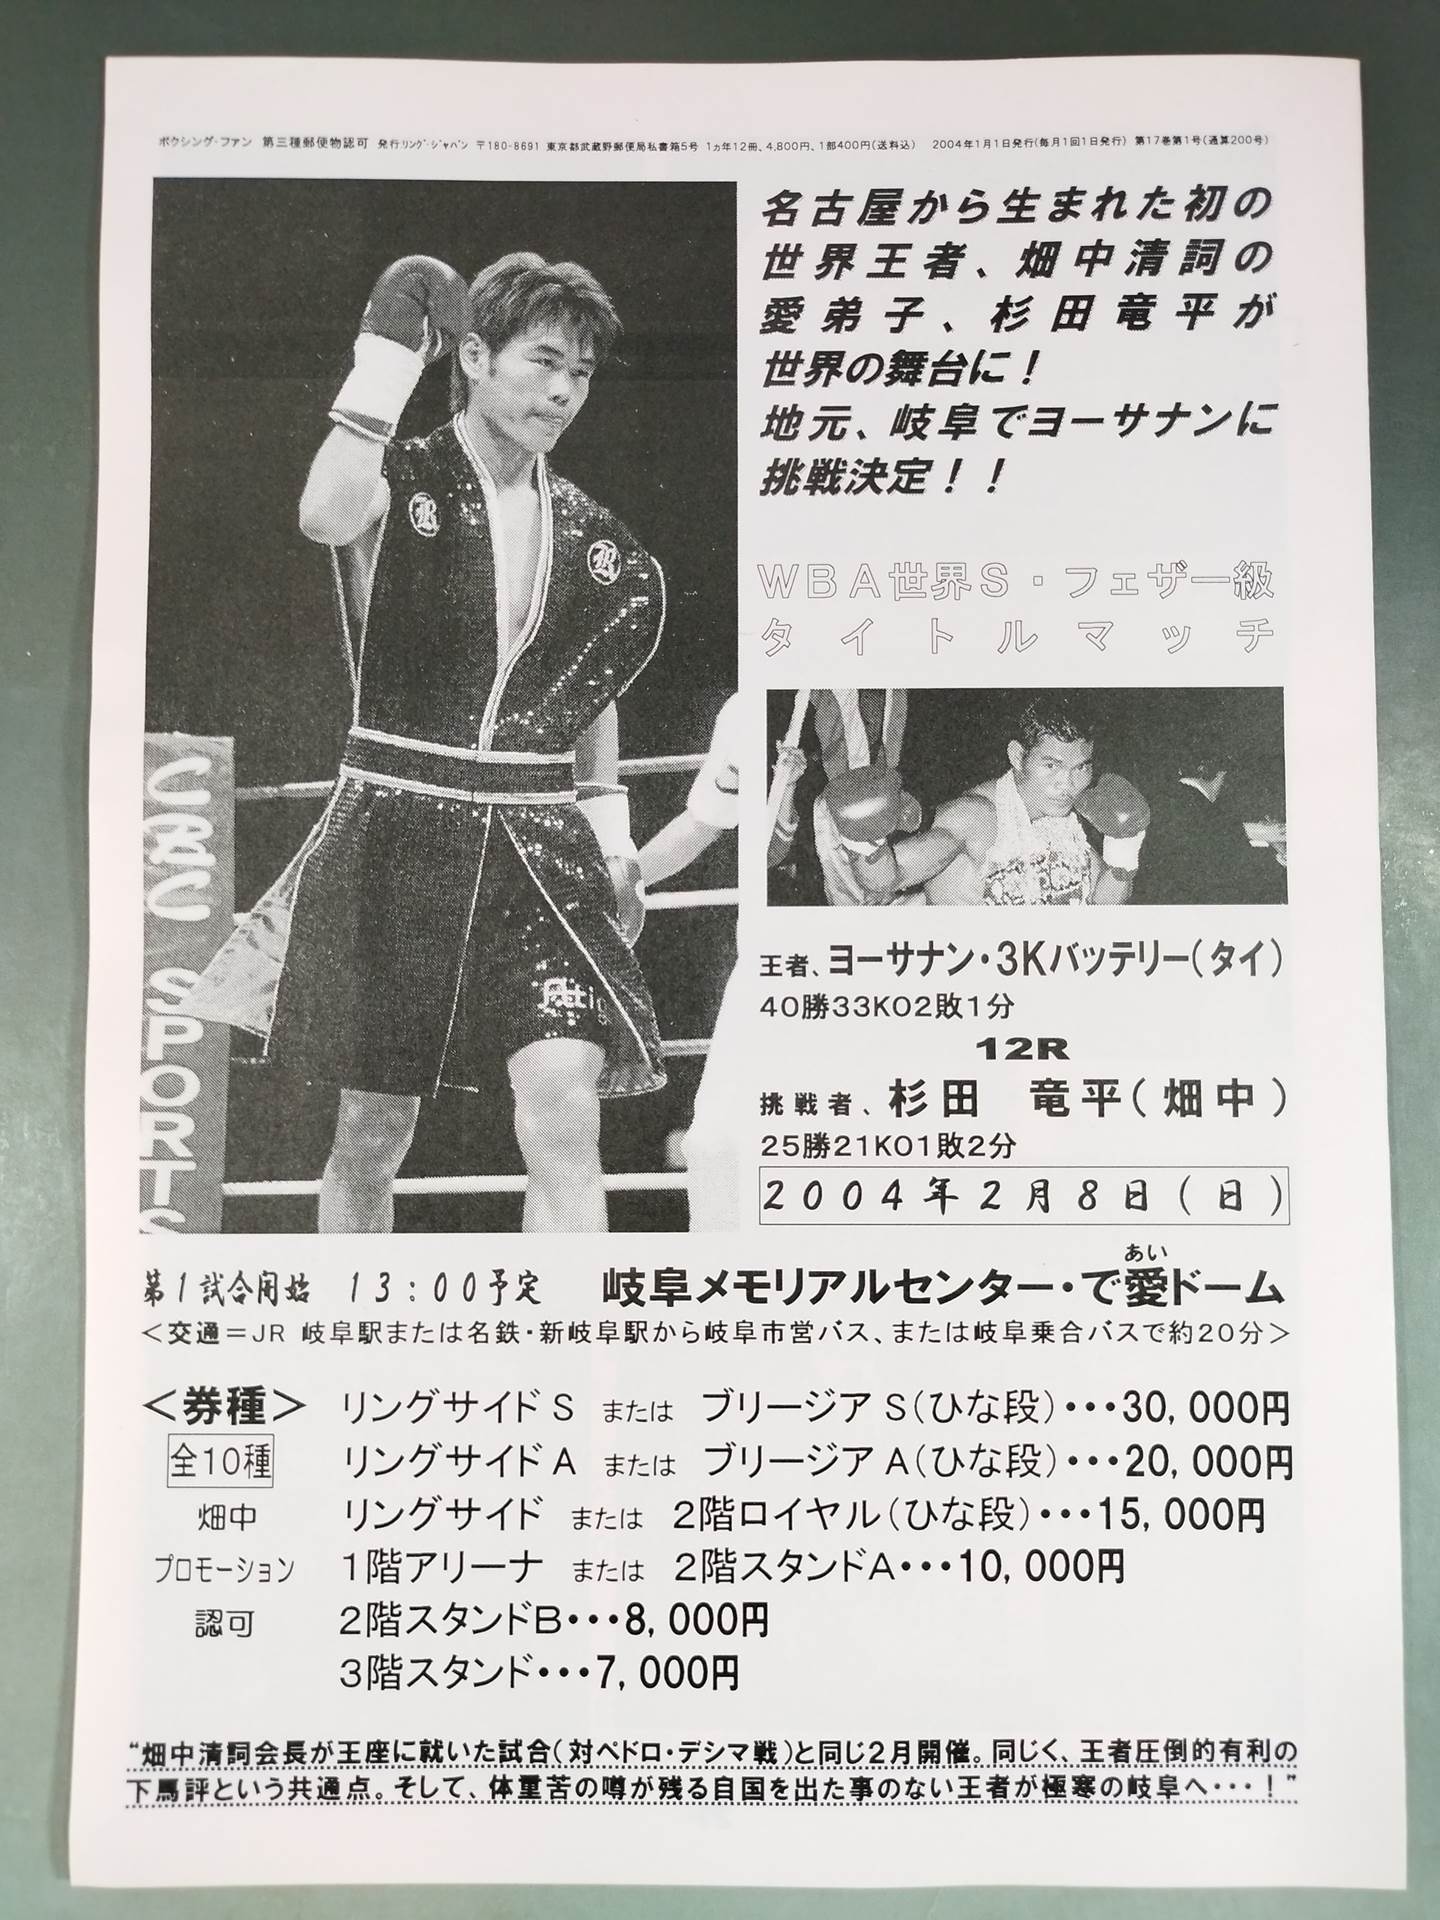 ボクシング・ファン 第三種郵便物認可 発行:リング・ジャパン 〒180-8691 東京都武蔵野郵便局私書箱5号 1ヵ年12冊、4,800円、1部400円(送料込) 2004年1月1日発行(毎月1回1日発行) 第17巻第1号(通算200号)
名古屋から生まれた初の
世界王者、畑中清詞の
愛弟子、杉田竜平が
世界の舞台に！
地元、岐阜でヨーサナンに
挑戦決定！！
WBA世界S・フェザー級
タイトルマッチ
CBC SPORTS
王者、ヨーサナン・3Kバッテリー(タイ)
40勝33KO2敗1分
12R
挑戦者、杉田 竜平(畑中)
25勝21KO1敗2分
2004年2月8日(日)
あい
第1試合開始 13:00予定 岐阜メモリアルセンター・で愛ドーム
＜交通＝JR 岐阜駅または名鉄・新岐阜駅から岐阜市営バス、または岐阜乗合バスで約20分＞
＜券種＞ リングサイドS または ブリージアS(ひな段)・・・30,000円
全10種 リングサイドA または ブリージアA(ひな段)・・・20,000円
畑中 リングサイド または 2階ロイヤル(ひな段)・・・15,000円
プロモーション 1階アリーナ または 2階スタンドA・・・10,000円
認可 2階スタンドB・・・8,000円
3階スタンド・・・7,000円
“畑中清詞会長が王座に就いた試合(対ペドロ・デシマ戦)と同じ2月開催。同じく、王者圧倒的有利の
下馬評という共通点。そして、体重苦の噂が残る自国を出た事のない王者が極寒の岐阜へ・・・！”